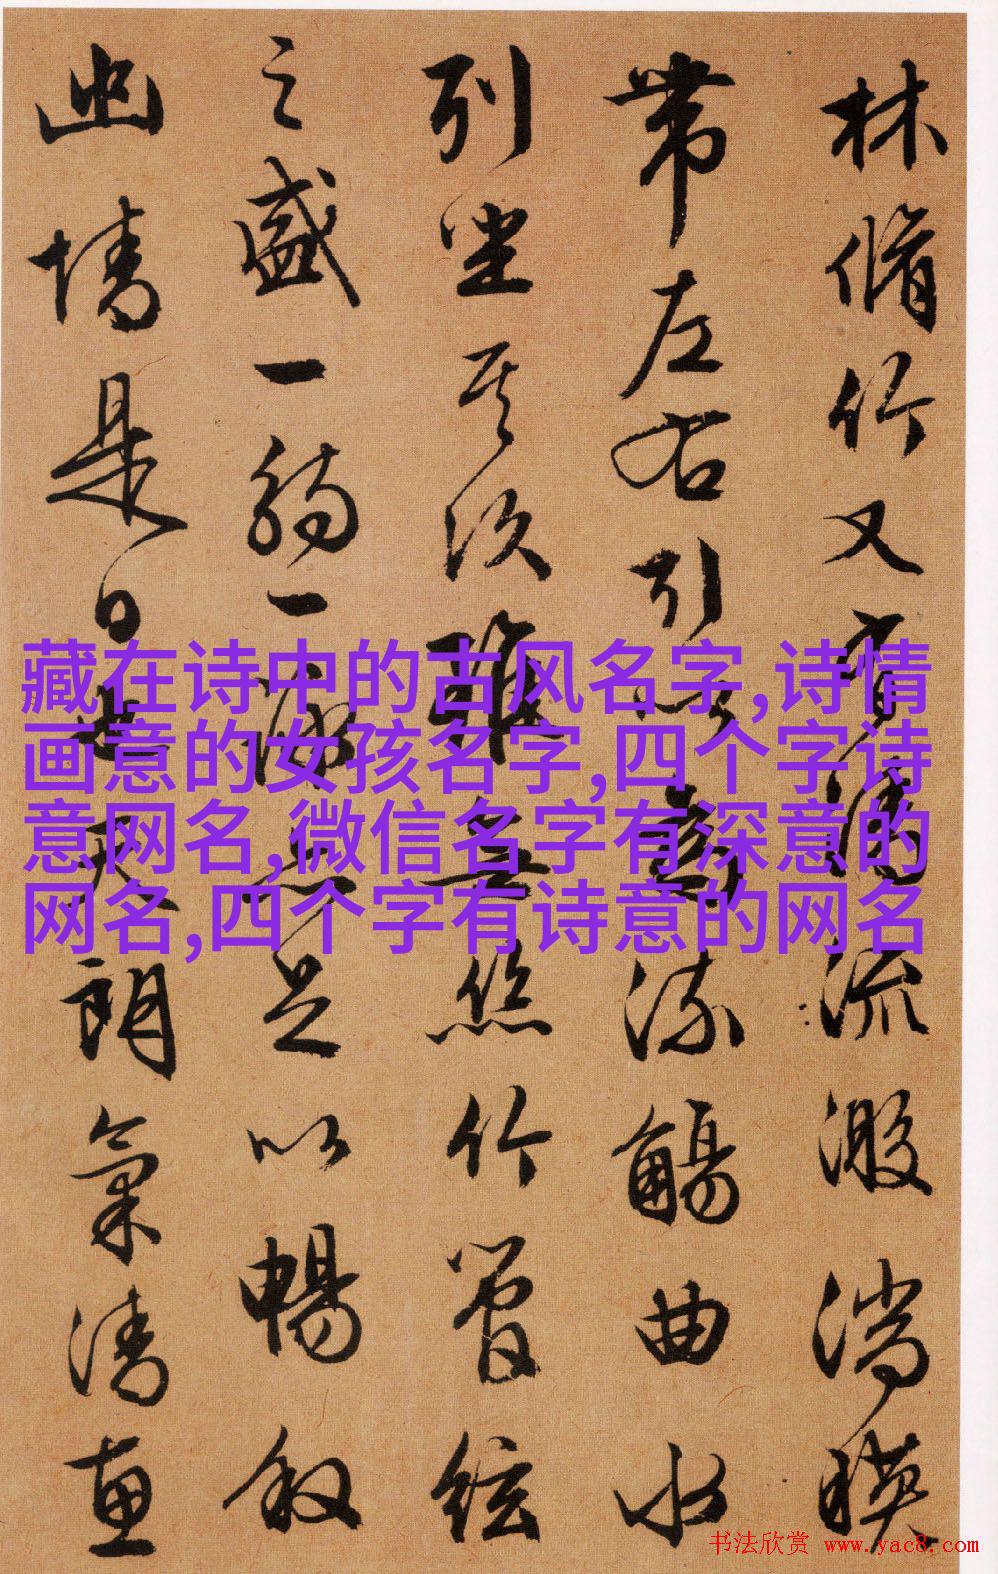 林脩竹又有清流激湍暎
帶左右引以為流觴曲水
列坐其次雖無絲竹管絃
之盛一觴一詠亦足以暢叙
幽情是日也天朗氣清惠
藏在诗中的古风名字,诗情
画意的女孩名字,四个字诗
意网名,微信名字有深意的
网名,四个字有诗意的网名
书法欣赏 www.yac8.com